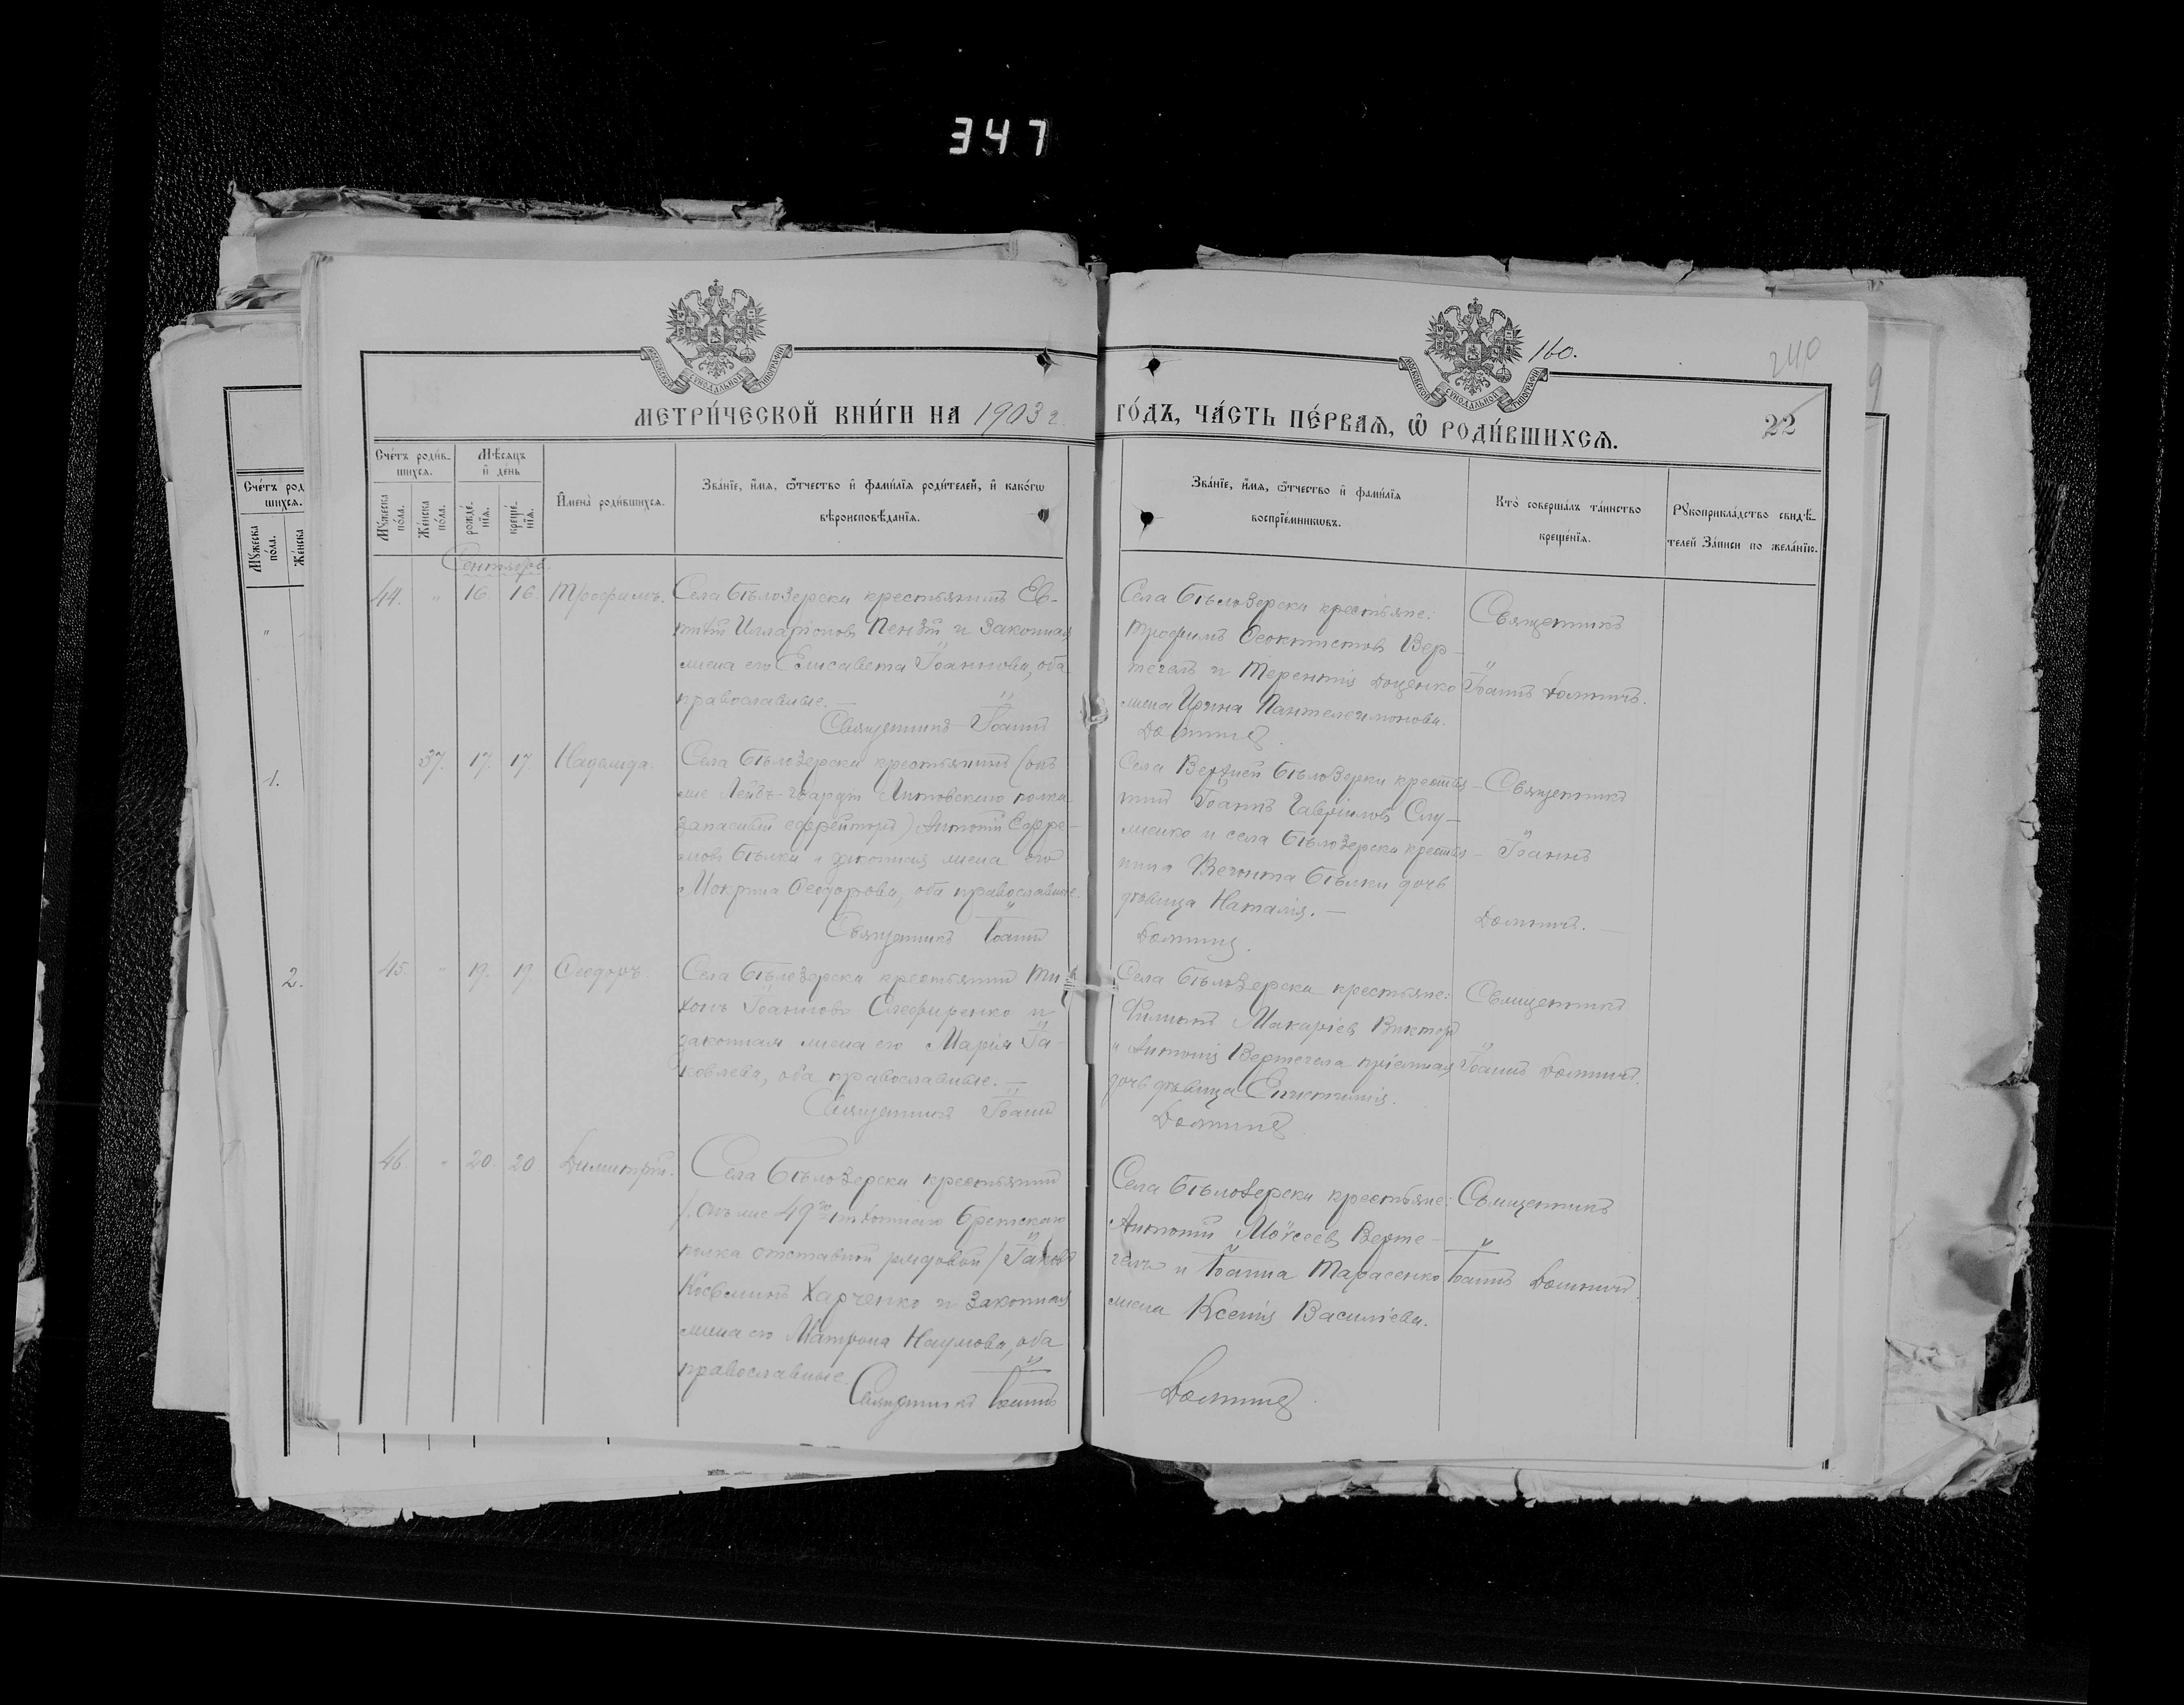 347
160.
240
22
МЕТРИ́ЧЕСКОЙ КНИ́ГИ НА 1903 г. ГО́ДЪ, ЧА́СТЬ ПЕ́РВАЯ, Ѡ РОДИ́ВШИХСЯ.
Сче́тъ роди́в-
шихся.
Мѣ́сяцъ
и҆ де́нь
Мꙋ́жеска
по́ла.
Же́нска
по́ла.
рожде́-
нїя.
креще́-
нїя.
И҆мена̀ роди́вшихся.
Зва́нїе, и҆́мя, ѻ҆́тчество и҆ фами́лїя роди́телей, и҆ како́гѡ
вѣроисповѣ́данїя.
Зва́нїе, и҆́мя, ѻ҆́тчество и҆ фами́лїя
воспрїе́мникѡвъ.
Кто̀ соверша́лъ та́инство
креще́нїя.
Рꙋкоприкла́дство свидѣ́-
телей за́писи по жела́нїю.
Сентябрь.
44. " 16. 16. Трофимъ.
Села Бѣлозерски крестьянинъ Ев-
тихій Илларіоновъ и законная
жена его Елисавета Іоаннова, оба
православные.
Священникъ Іоаннъ
Села Бѣлозерски крестьяне:
Трофимъ Ѳеоктистовъ Вер-
тегелъ и Терентія Доценко
жена Ирина Пантелеимонова.
Священникъ
Іоаннъ
37. 17. 17. Надежда.
Села Бѣлозерски крестьянинъ (онъ
же Лейбъ-гвардіи Литовскаго полка
запасный ефрейторъ) Антоній Ефре-
мовъ Бѣлка и законная жена его
Мокрина Ѳеодорова, оба православные.
Священникъ Іоаннъ
Села Верхней Бѣлозерки крестья-
нинъ Іоаннъ Гавріиловъ Слу-
женко и села Бѣлозерски крестья-
нина Бѣлки дочь
дѣвица Наталія.
Священникъ
Іоаннъ
45. " 19. 19. Ѳеодоръ.
Села Бѣлозерски крестьянинъ Ти-
хонъ Іоанновъ Олефиренко и
законная жена его Марія Іа-
ковлева, оба православные.
Священникъ Іоаннъ
Села Бѣлозерски крестьяне:
Филиппъ Макаріевъ Викторъ
и Антонія Вертегела пріемная
дочь дѣвица
Священникъ
Іоаннъ
46. " 20. 20. Димитрій.
Села Бѣлозерски крестьянинъ
(онъ же 49го пѣхотнаго Брестскаго
полка отставной рядовой) Іаковъ
Косьминъ Харченко и законная
жена его Матрона Наумова, оба
православные.
Священникъ Іоаннъ
Села Бѣлозерски крестьяне:
Антоній Моѵсеевъ Верте-
гелъ и Іоанна Тарасенко
жена Ксенія Василіева.
Священникъ
Іоаннъ
Сче́тъ род
шихся.
Мꙋ́жеска
по́ла.
Же́нска
1.
2.